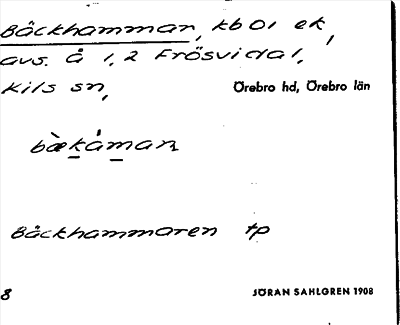 Bäckhammar, kb 01 ek,
avs. Å 1,2 Frösvidal,
Kils sn, Örebro hd, Örebro län
bæ̀kåman
Bäckhammaren tp
8 JÖRAN SAHLGREN 1908